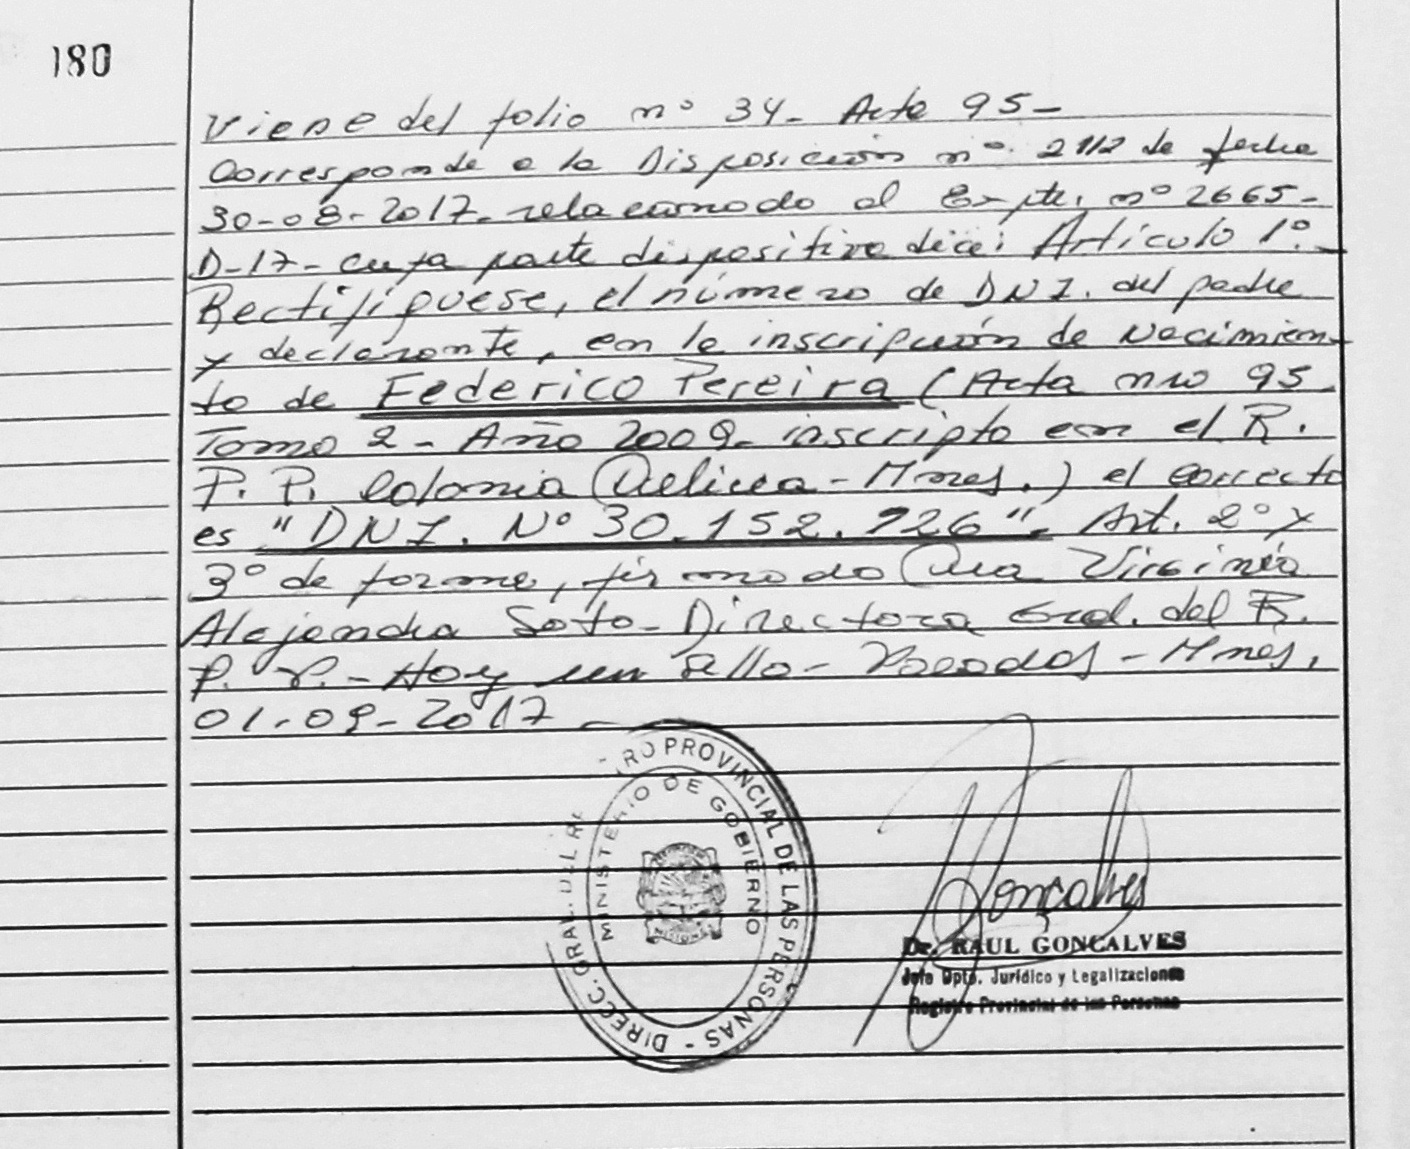 180
Viene del folio nº 34- Acta 95-
Corresponde a la Disposición nº 2112 de fecha
30-08-2017- relacionado al Expte. nº 2665-
D-17- cuya parte dispositiva dice: Artículo 1º.-
Rectifíquese, el número de DNI. del padre
y declarante, en la inscripción de Nacimien-
to de Federico Pereira (Acta nro 95-
Tomo 2- Año 2009- inscripto en el R.
P. P. Colonia Delicia - Mnes.) el correcto
es "DNI. Nº 30.152.926". Art. 2º y
3º de forma, firmado Dra Virginia
Alejandra Soto- Directora Gral. del R.
P. P.- Hay un sello- Posadas - Mnes,
01-09-2017-
DIRECC. GRAL. DEL RE RO PROVINCIAL DE LAS PERSONAS -
MINISTERIO DE GOBIERNO
MISIONES
Goncalves
Dr. RAUL GONCALVES
Jefe Dpto. Jurídico y Legalizaciones
Registro Provincial de las Personas